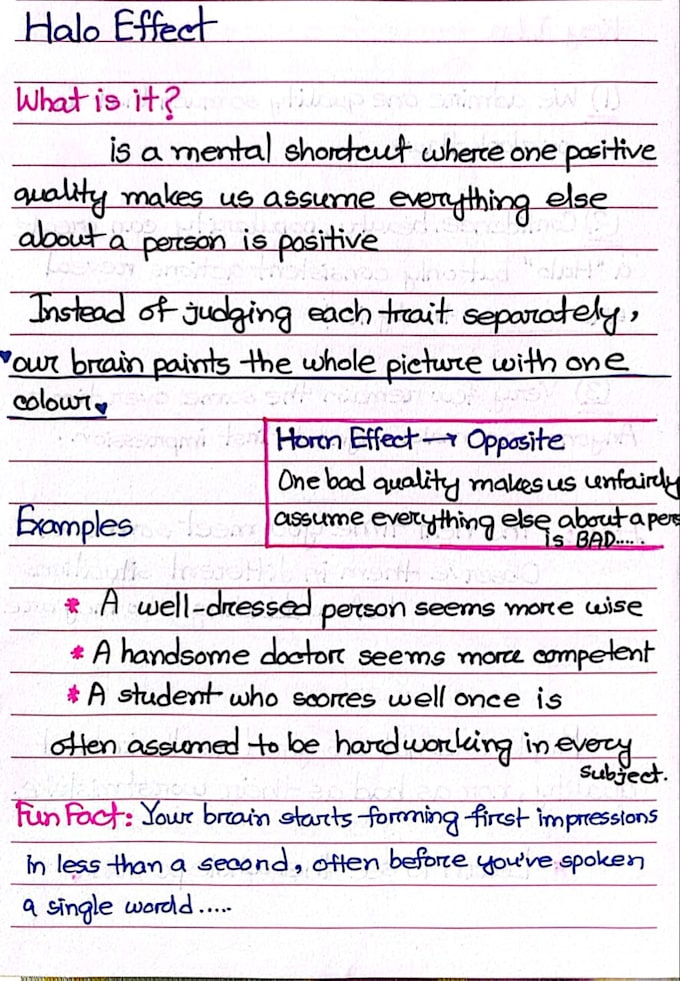 Halo Effect
What is it?
is a mental shortcut where one positive
quality makes us assume everything else
about a person is positive
Instead of judging each trait separately,
our brain paints the whole picture with one
colour.
Horn Effect → Opposite
One bad quality makes us unfairly
assume everything else about a pers
is BAD.....
Examples
* A well-dressed person seems more wise
* A handsome doctor seems more competent
* A student who scores well once is
often assumed to be hardworking in every
subject.
Fun Fact: Your brain starts forming first impressions
in less than a second, often before you've spoken
a single wordd.....